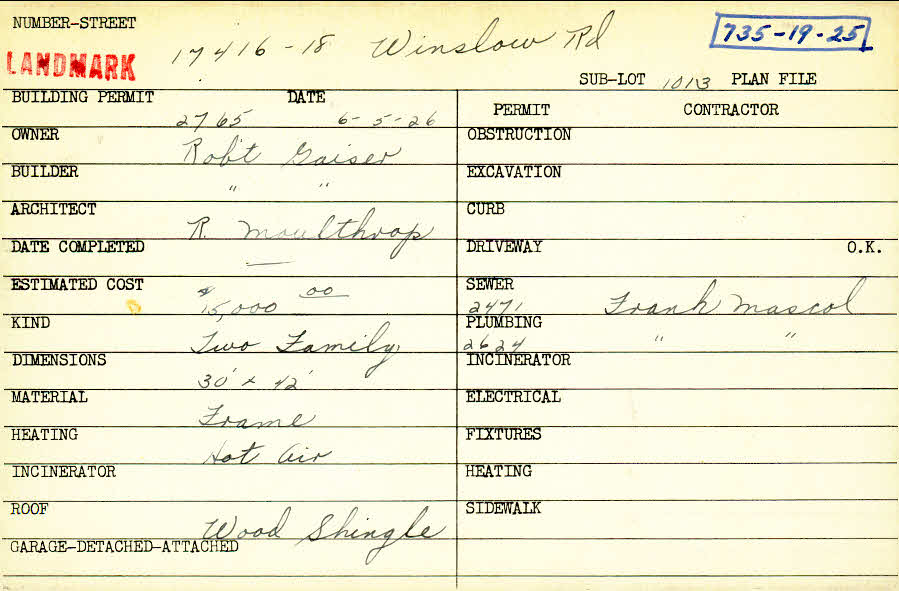 NUMBER-STREET 17416-18 Winslow Rd 735-19-25
LANDMARK
SUB-LOT 1013 PLAN FILE
BUILDING PERMIT 2765 DATE 6-5-26
PERMIT CONTRACTOR
OWNER Rob't Gaiser
OBSTRUCTION
BUILDER " "
EXCAVATION
ARCHITECT R. Moulthrop
CURB
DATE COMPLETED —
DRIVEWAY O.K.
ESTIMATED COST $15,000 00
SEWER 2471 Frank Mascol
KIND Two Family
PLUMBING 2624 " "
DIMENSIONS 30' x 42'
INCINERATOR
MATERIAL Frame
ELECTRICAL
HEATING Hot Air
FIXTURES
INCINERATOR
HEATING
ROOF Wood Shingle
SIDEWALK
GARAGE-DETACHED-ATTACHED